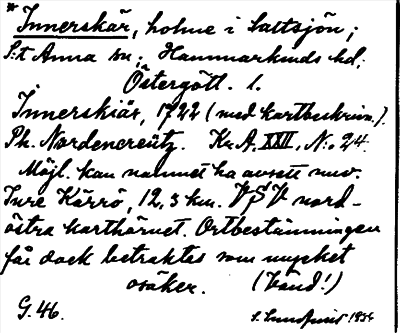 * Innerskär, holme i Saltsjön;
S:t Anna sn; Hammarkinds hd;
Östergötl. l.
Innerskiär, 1722 (med kartbeskrivn.).
Ph. Nordencreütz. Kr. A. XXII, N:o 24.
Möjl. kan namnet ha avsett nuv.
Inre Kärrö, 12,3 km. VSV nord-
östra karthörnet. Ortbestämningen
får dock betraktas som mycket
osäker. (Vänd!)
G. 46. S. Lundquist 1934